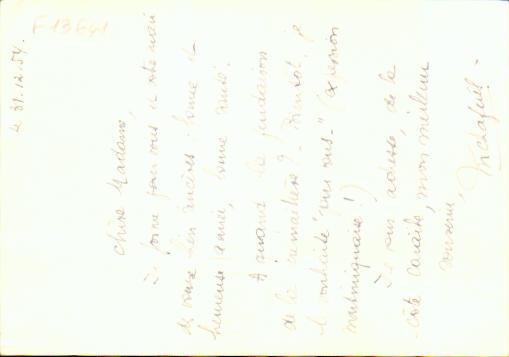 F13641
le 31.12.54.
Chère Madame,
Je forme pour vous et votre mari
des vœux bien sincères : bonne et
heureuse année, bonne santé !
A quand la fondation
de la ? Bientôt, je
le souhaite "pour vous" (expression
martiniquaise !)
Je vous adresse, de la
côte caraïbe, mon meilleur
souvenir,